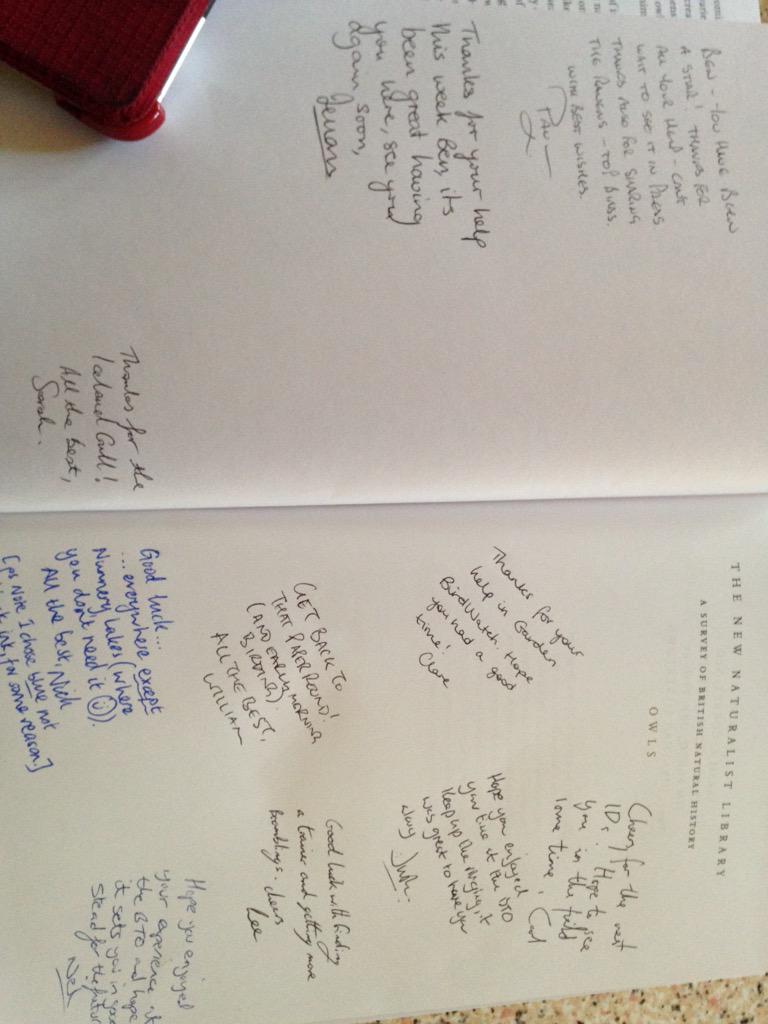 BEN - YOU HAVE BEEN
A STAR! THANKS FOR
ALL YOUR HELP - CAN'T
WAIT TO SEE IT IN PRESS
THANKS ALSO FOR SHARING
THE - TOP BINS.
WITH BEST WISHES
PAUL
Thanks for your help
this week Ben, its
been great having
you here, see you
again soon,
Thanks for the
Iceland Gull!
All the best,
Sarah.
THE NEW NATURALIST LIBRARY
A SURVEY OF BRITISH NATURAL HISTORY
OWLS
Cheers for the nest
IDs! Hope to see
you in the field
some time, Carl
Thanks for your
help in Garden
BirdWatch. Hope
you had a good
time!
Clare
Hope you enjoyed
your time at the BTO
Keep up the ringing, it
was great to have you
GET BACK TO
THAT PAPER ROUND!
(AND EARLY MORNING
BIRDING).
ALL THE BEST,
WILLIAM
Good luck with finding
a trainer and getting more
Bramblings. cheers
Lee
Good luck...
...everywhere except
Nunnery Lakes (where
you don't need it ☺).
All the best, Nick
[ps Note I chose blue not
black ink, for some reason.]
Hope you enjoyed
your experience at
the BTO and hope
it sets you in good
Stead for the future